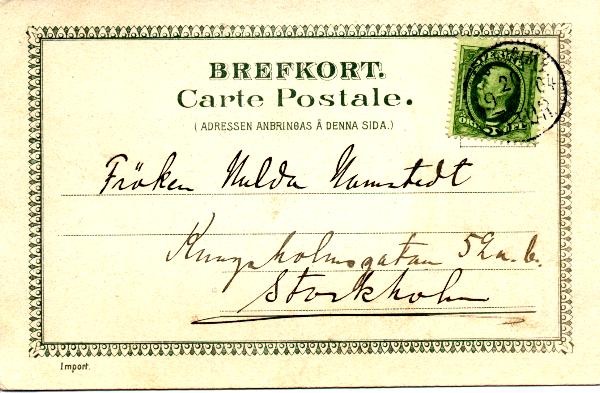 BREFKORT.
Carte Postale.
(ADRESSEN ANBRINGAS Å DENNA SIDA.)
Fröken Hulda Hamstedt
Kungsholmsgatan 52 a. b.
Stockholm
Import.
5